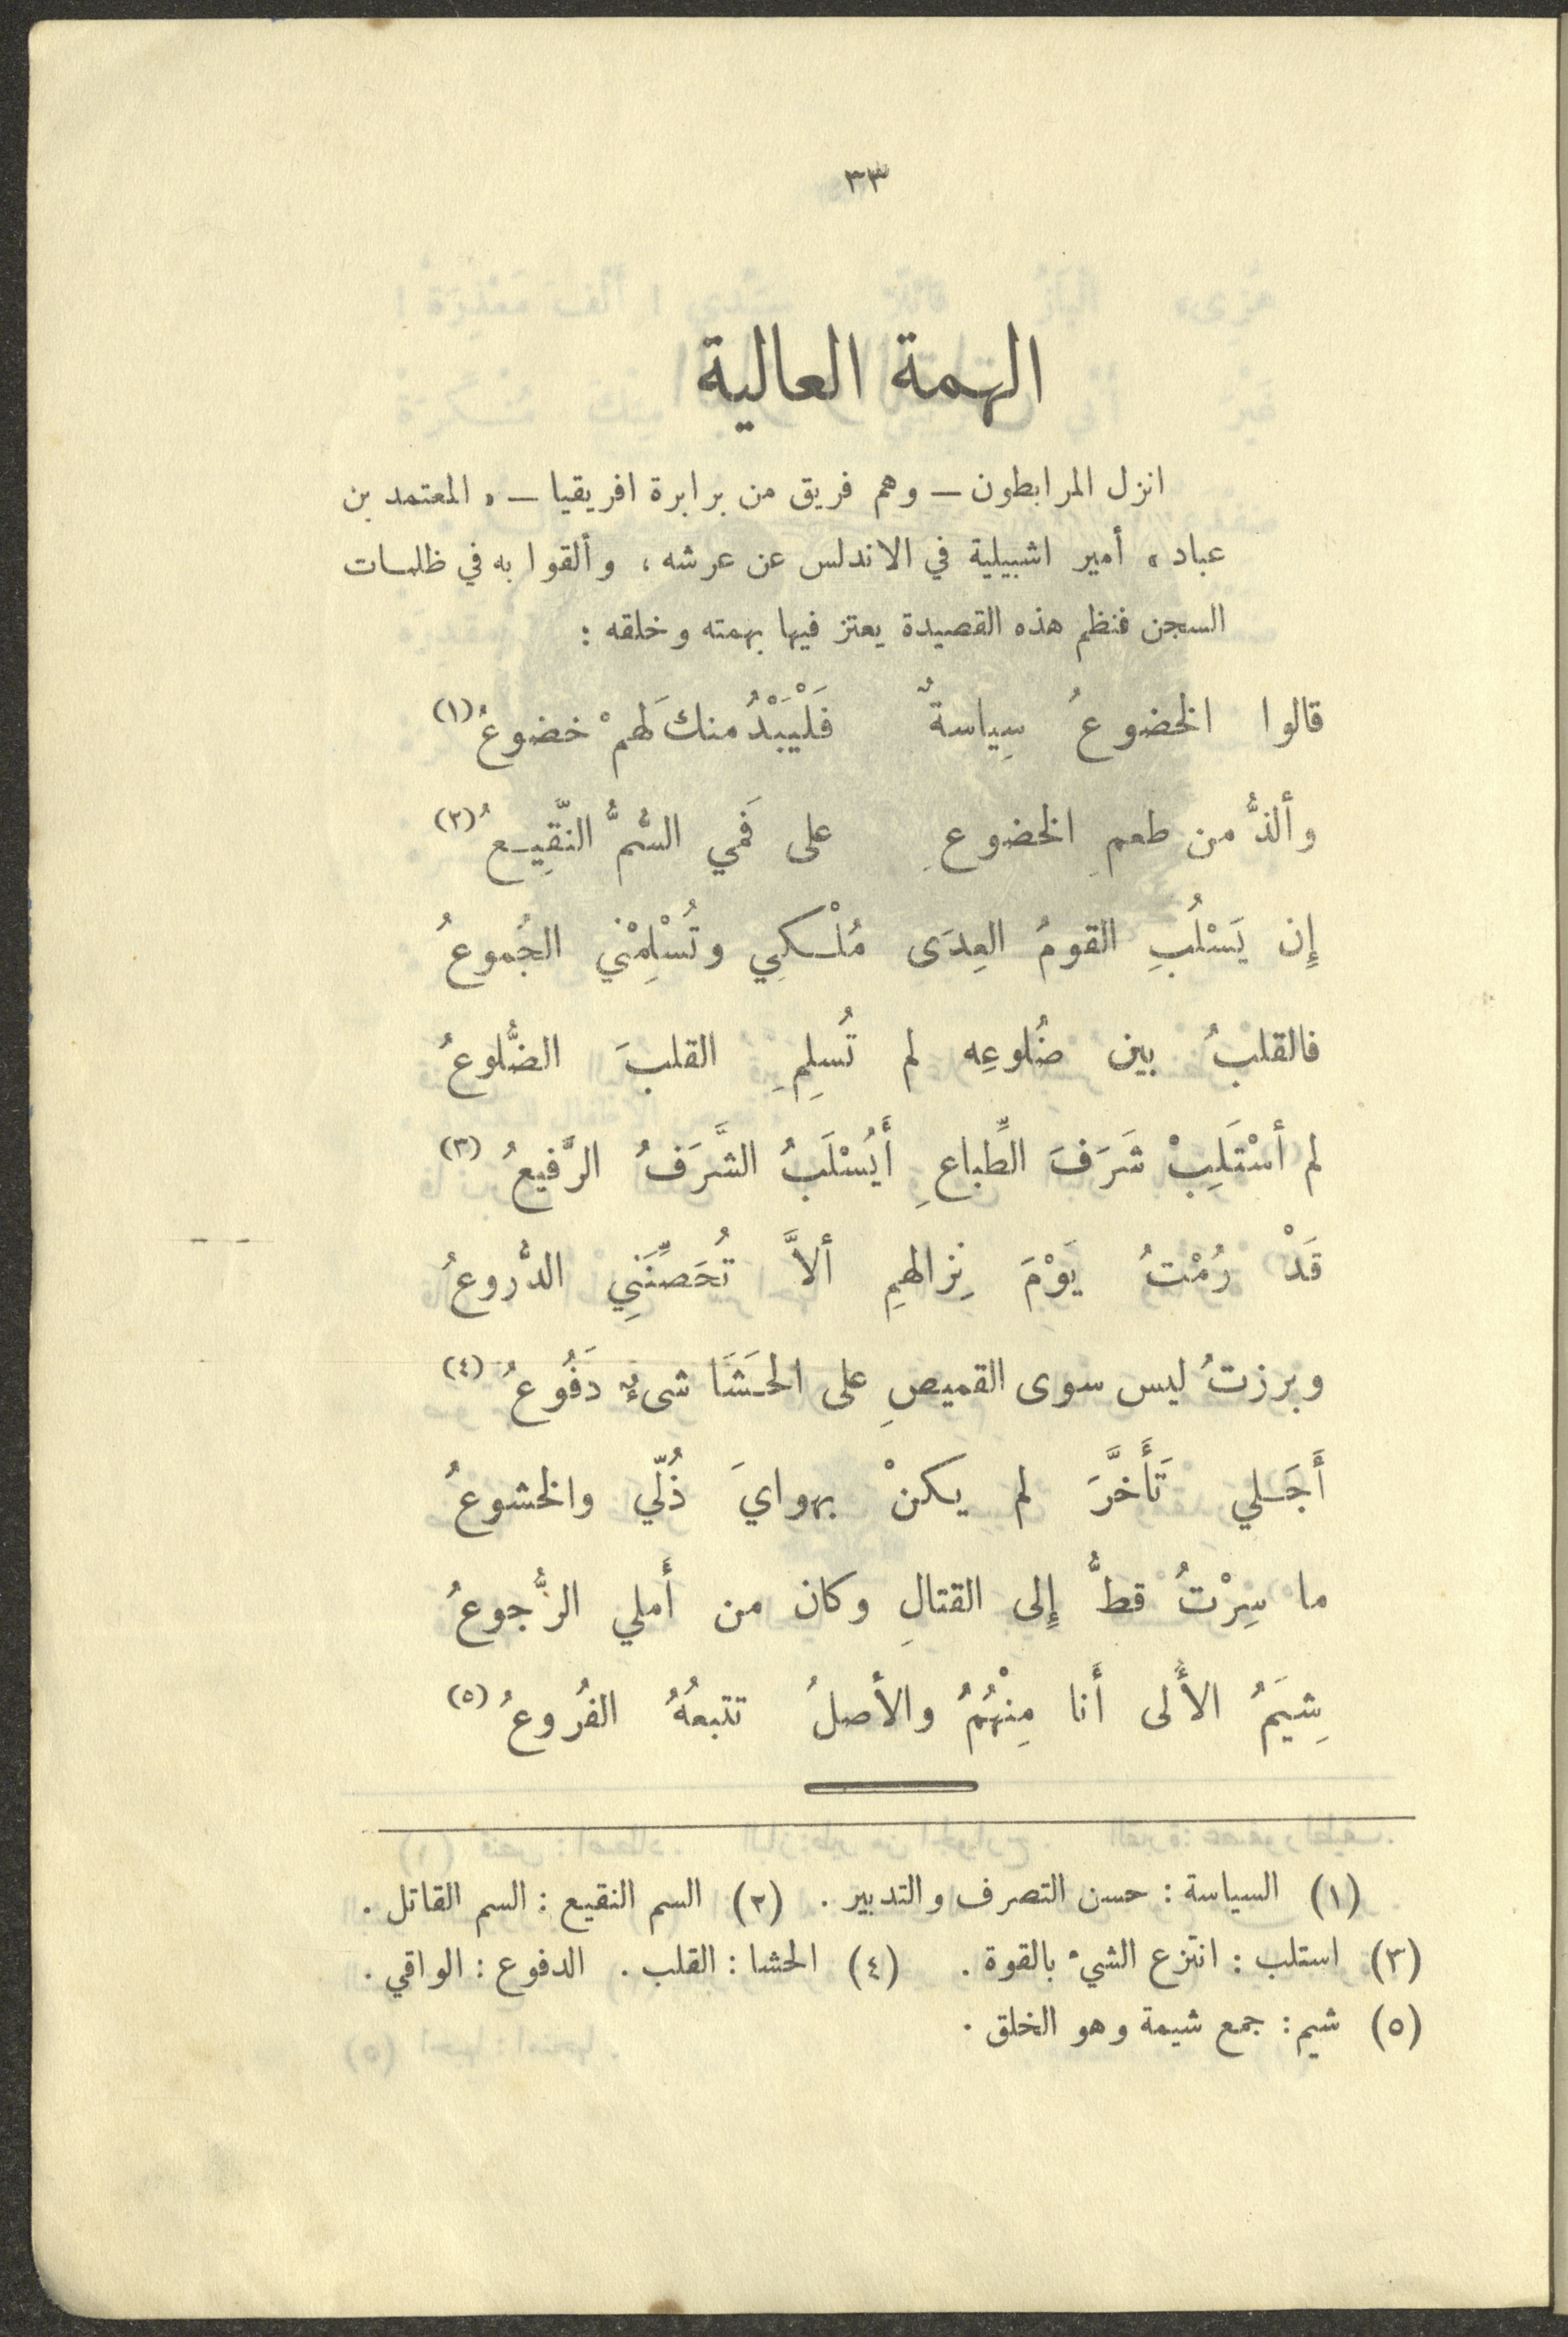 ٣٣
الهمة العالية
انزل المرابطون — وهم فريق من برابرة افريقيا — « المعتمد بن
عباد » أمير اشبيلية في الاندلس عن عرشه ، وألقوا به في ظلمات
السجن فنظم هذه القصيدة يعتز فيها بهمته وخلقه :
قالوا الخضوعُ سِياسةٌ فَلْيَبْدُ منك لَهمْ خضوعُ (١)
وألذُّ من طعمِ الخضوعِ على فَمي السُّمُّ النّقِيعُ (٢)
إِن يَسْلُبِ القومُ العِدَى مُلْكِي وتُسْلِمْني الجُموعُ
فالقلبُ بين ضُلوعِه لم تُسلِمِ القلبَ الضُّلوعُ
لم أسْتَلِبْ شَرَفَ الطِّباعِ أَيُسْلَبُ الشَّرَفُ الرَّفيعُ (٣)
قَدْ رُمْتُ يَوْمَ نِزالهمِ ألاَّ تُحَصِّنَنِي الدُّروعُ
وبرزتُ ليس سوى القميصِ على الحَشَا شىءٌ دَفُوعُ (٤)
أَجَلي تَأَخَّرَ لم يكنْ بهوايَ ذُلّي والخشوعُ
ما سِرْتُ قطُّ إِلى القتالِ وكان من أَملي الرُّجوعُ
شِيَمُ الأُلى أَنا مِنْهُمُ والأصلُ تتبعُهُ الفُروعُ (٥)
(١) السياسة : حسن التصرف والتدبير . (٢) السم النقيع : السم القاتل .
(٣) استلب : انتزع الشيء بالقوة . (٤) الحشا : القلب . الدفوع : الواقي .
(٥) شيم : جمع شيمة وهو الخلق .